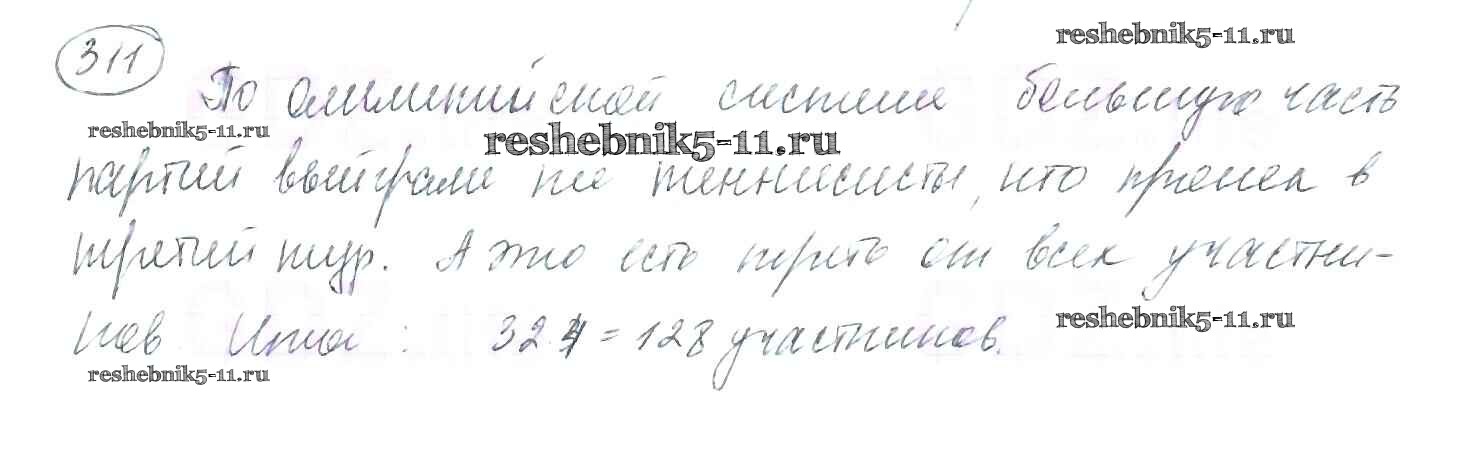 311
reshebnik5-11.ru
По олимпийской системе большую часть
reshebnik5-11.ru
reshebnik5-11.ru
партий выйграли те теннисисты, кто прошел в
третий тур. А это есть треть от всех участни-
reshebnik5-11.ru
ков. Итог: 32.4 = 128 участников.
reshebnik5-11.ru